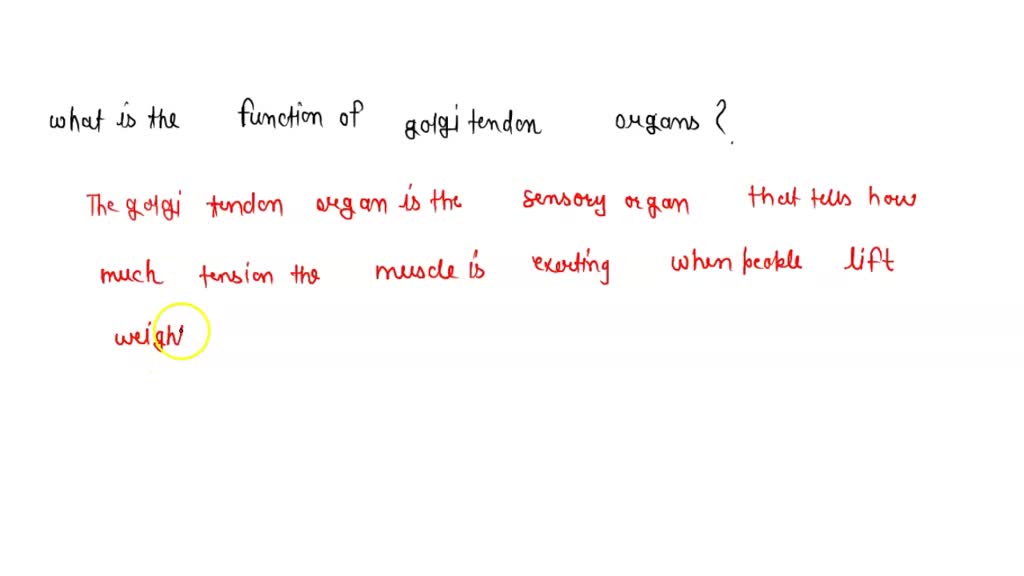 what is the function of golgi tendon organs?
The golgi tendon organ is the sensory organ that tells how
much tension the muscle is exerting when people lift
weigh